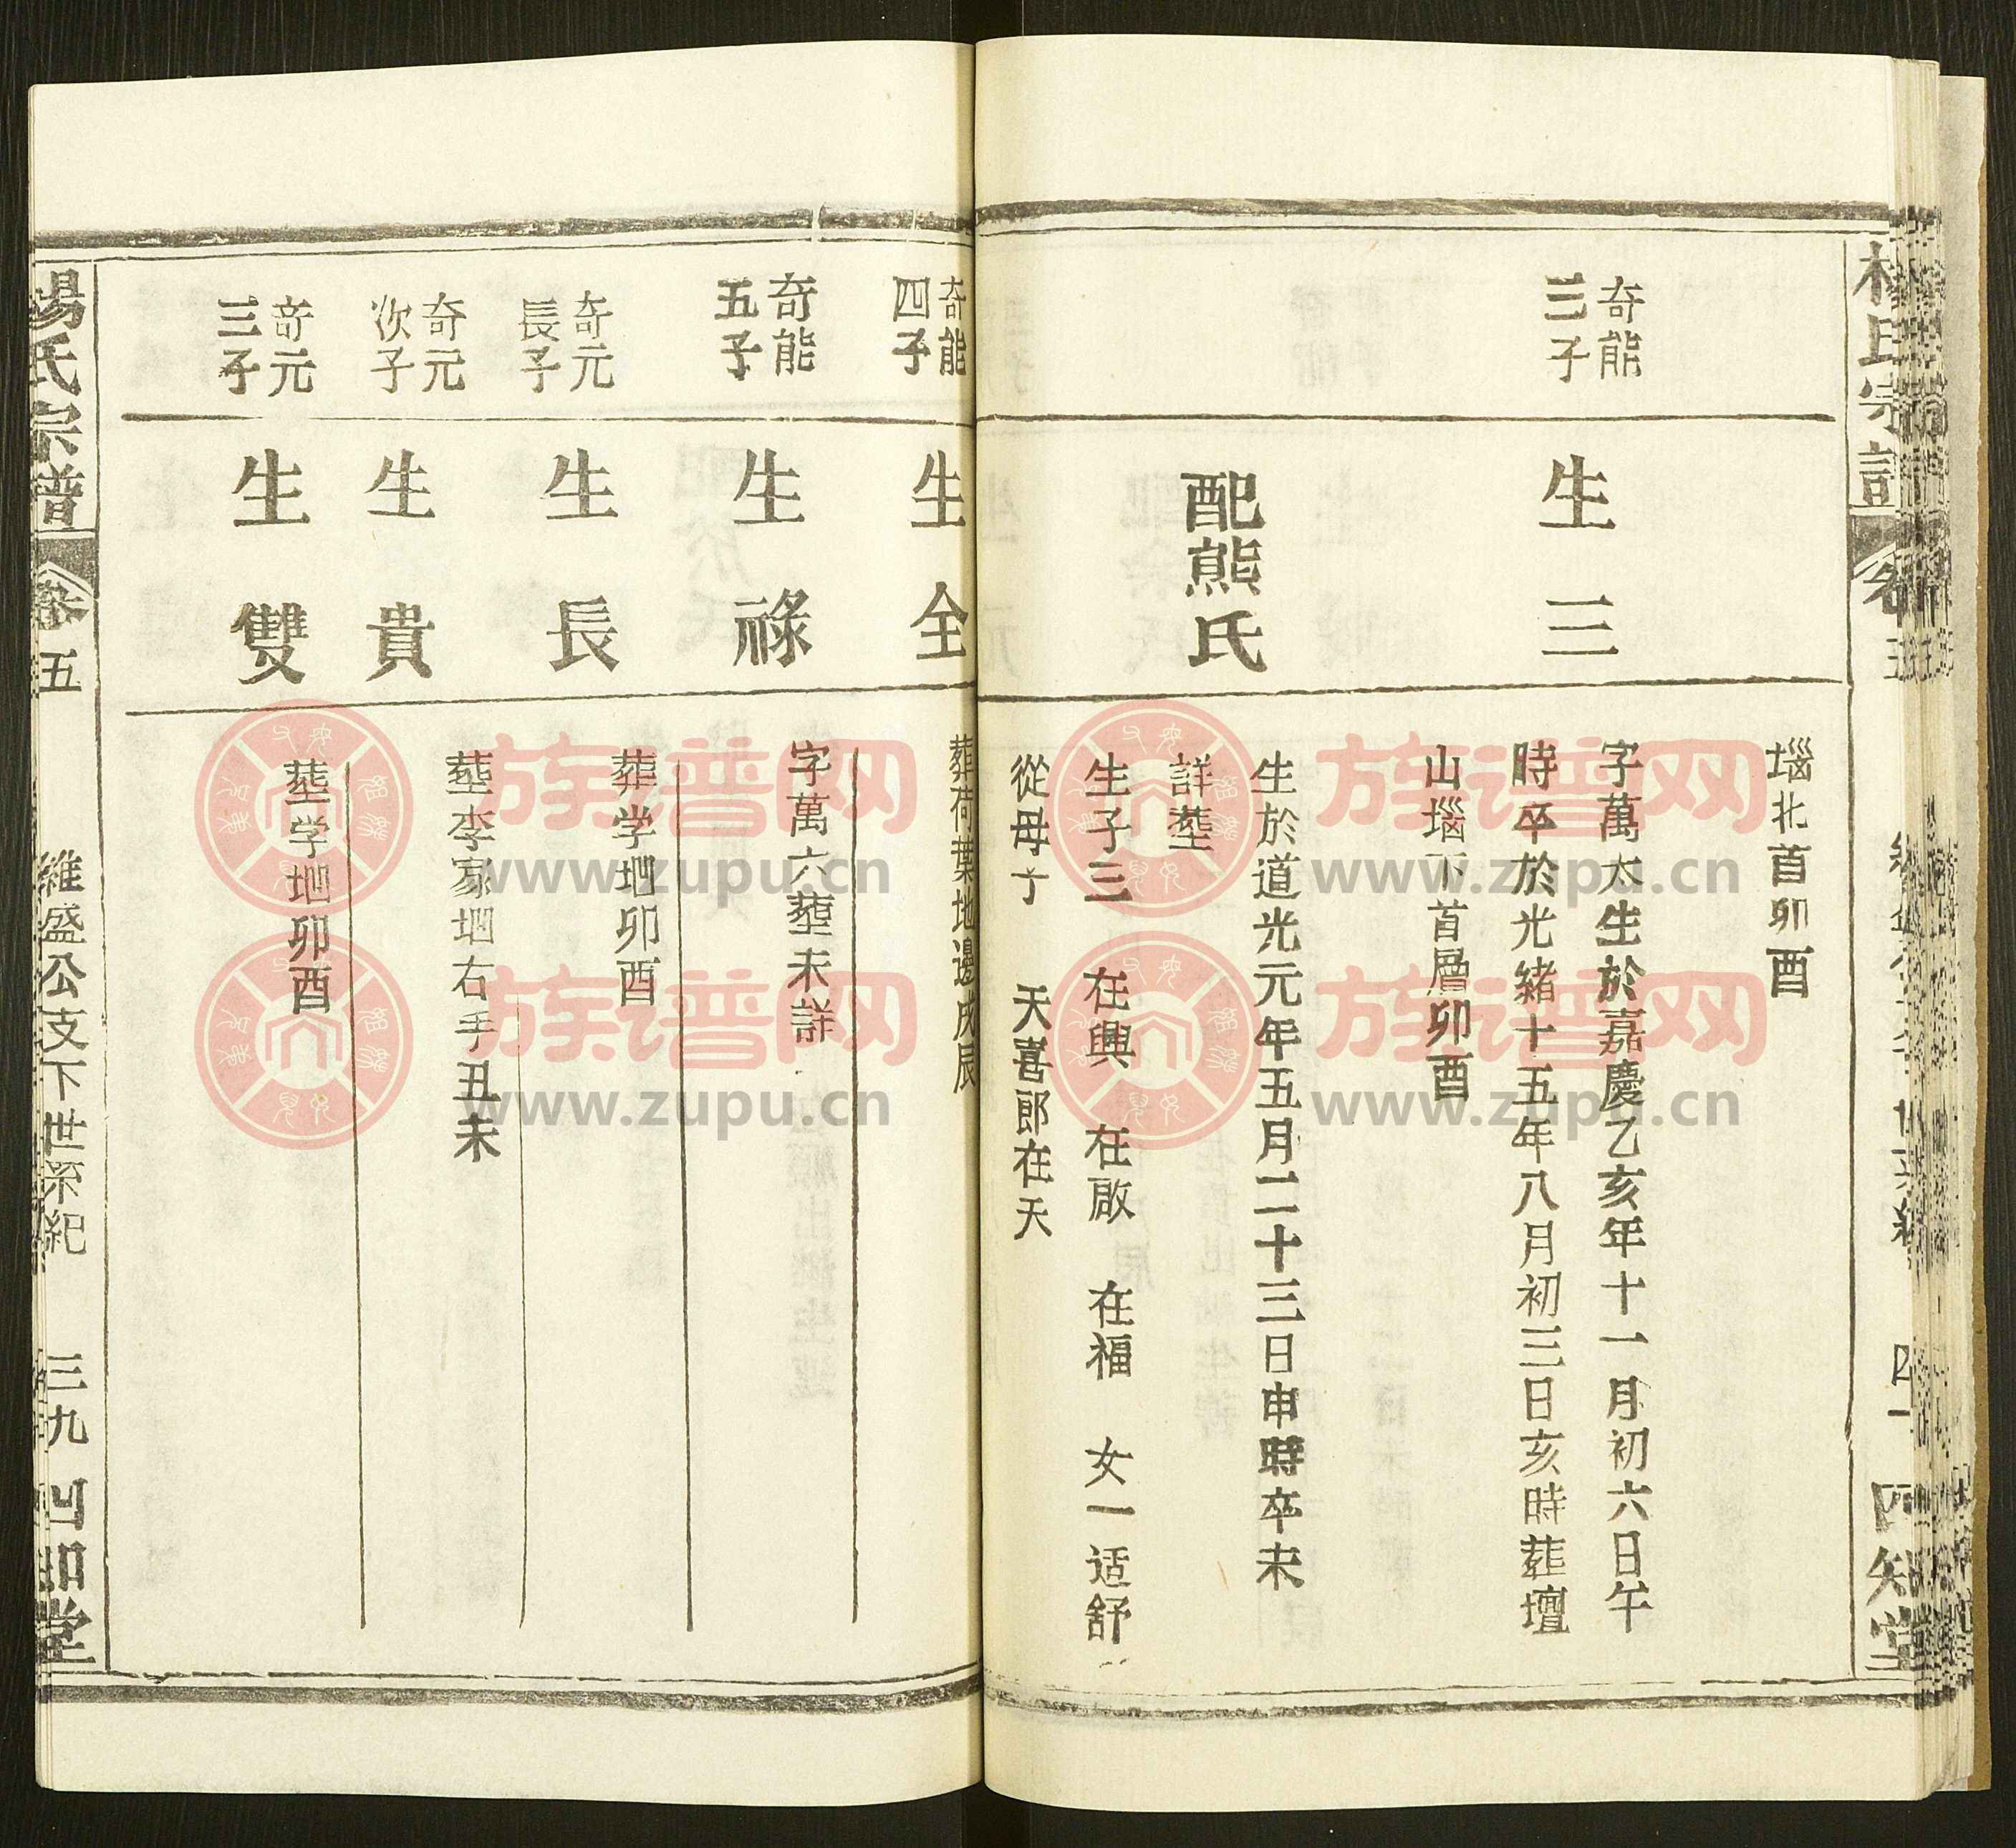 楊氏宗譜
五
四一
四知堂
堖北首卯酉
奇能
三子
生三
字萬木生於嘉慶乙亥年十一月初六日午
時卒於光緒十五年八月初三日亥時葬壇
山堖下首層卯酉
配熊氏
生於道光元年五月二十三日申時卒未
詳塟
生子三 在興 在啟 在福 女一适舒
從母子 天喜郎在天
奇能
四子
生全
葬荷葉地邊戌辰
奇能
五子
生祿
字萬六塟未詳
奇元
長子
生長
葬学地卯酉
奇元
次子
生貴
塟李家地右手丑未
奇元
三子
生雙
塟学地卯酉
楊氏宗譜
卷五
維盛公支下世系紀
三九
四知堂
族谱网
www.zupu.cn
族谱网
www.zupu.cn
族谱网
www.zupu.cn
族谱网
www.zupu.cn